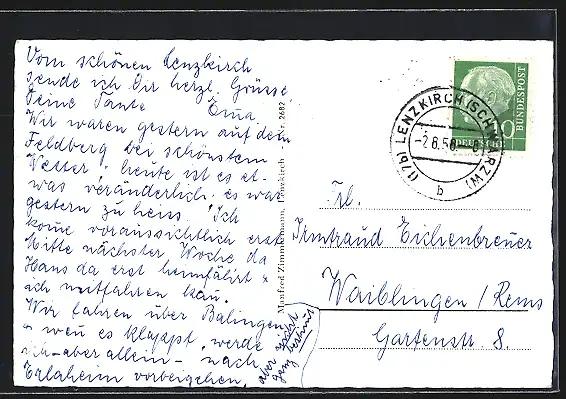 Vom schönen Lenzkirch
sende ich Dir herzl. Grüsse
Deine Tante Erna.
Wir waren gestern auf dem
Feldberg bei schönstem
Wetter, heute ist es et-
was veränderlich, es war
gestern zu heiss. Ich
kome voraussichtlich erst
Mitte nächster Woche da
Hans da erst heimfährt u
ich mitfahren kan.
Wir fahren über Balingen
u wen es klappt, werde
ich - aber allein - nach
Erlaheim vorbeigehen,
aber nicht
ganz bestimt
Manfred Zimmermann, Lenzkirch Nr. 2682
BUNDESPOST
DEUTSCHE
(17b) LENZKIRCH (SCHWARZW)
-2.6.58
b
Frl.
Irmtraud Eichenbrenner
Waiblingen / Rems
Gartenstr 8.